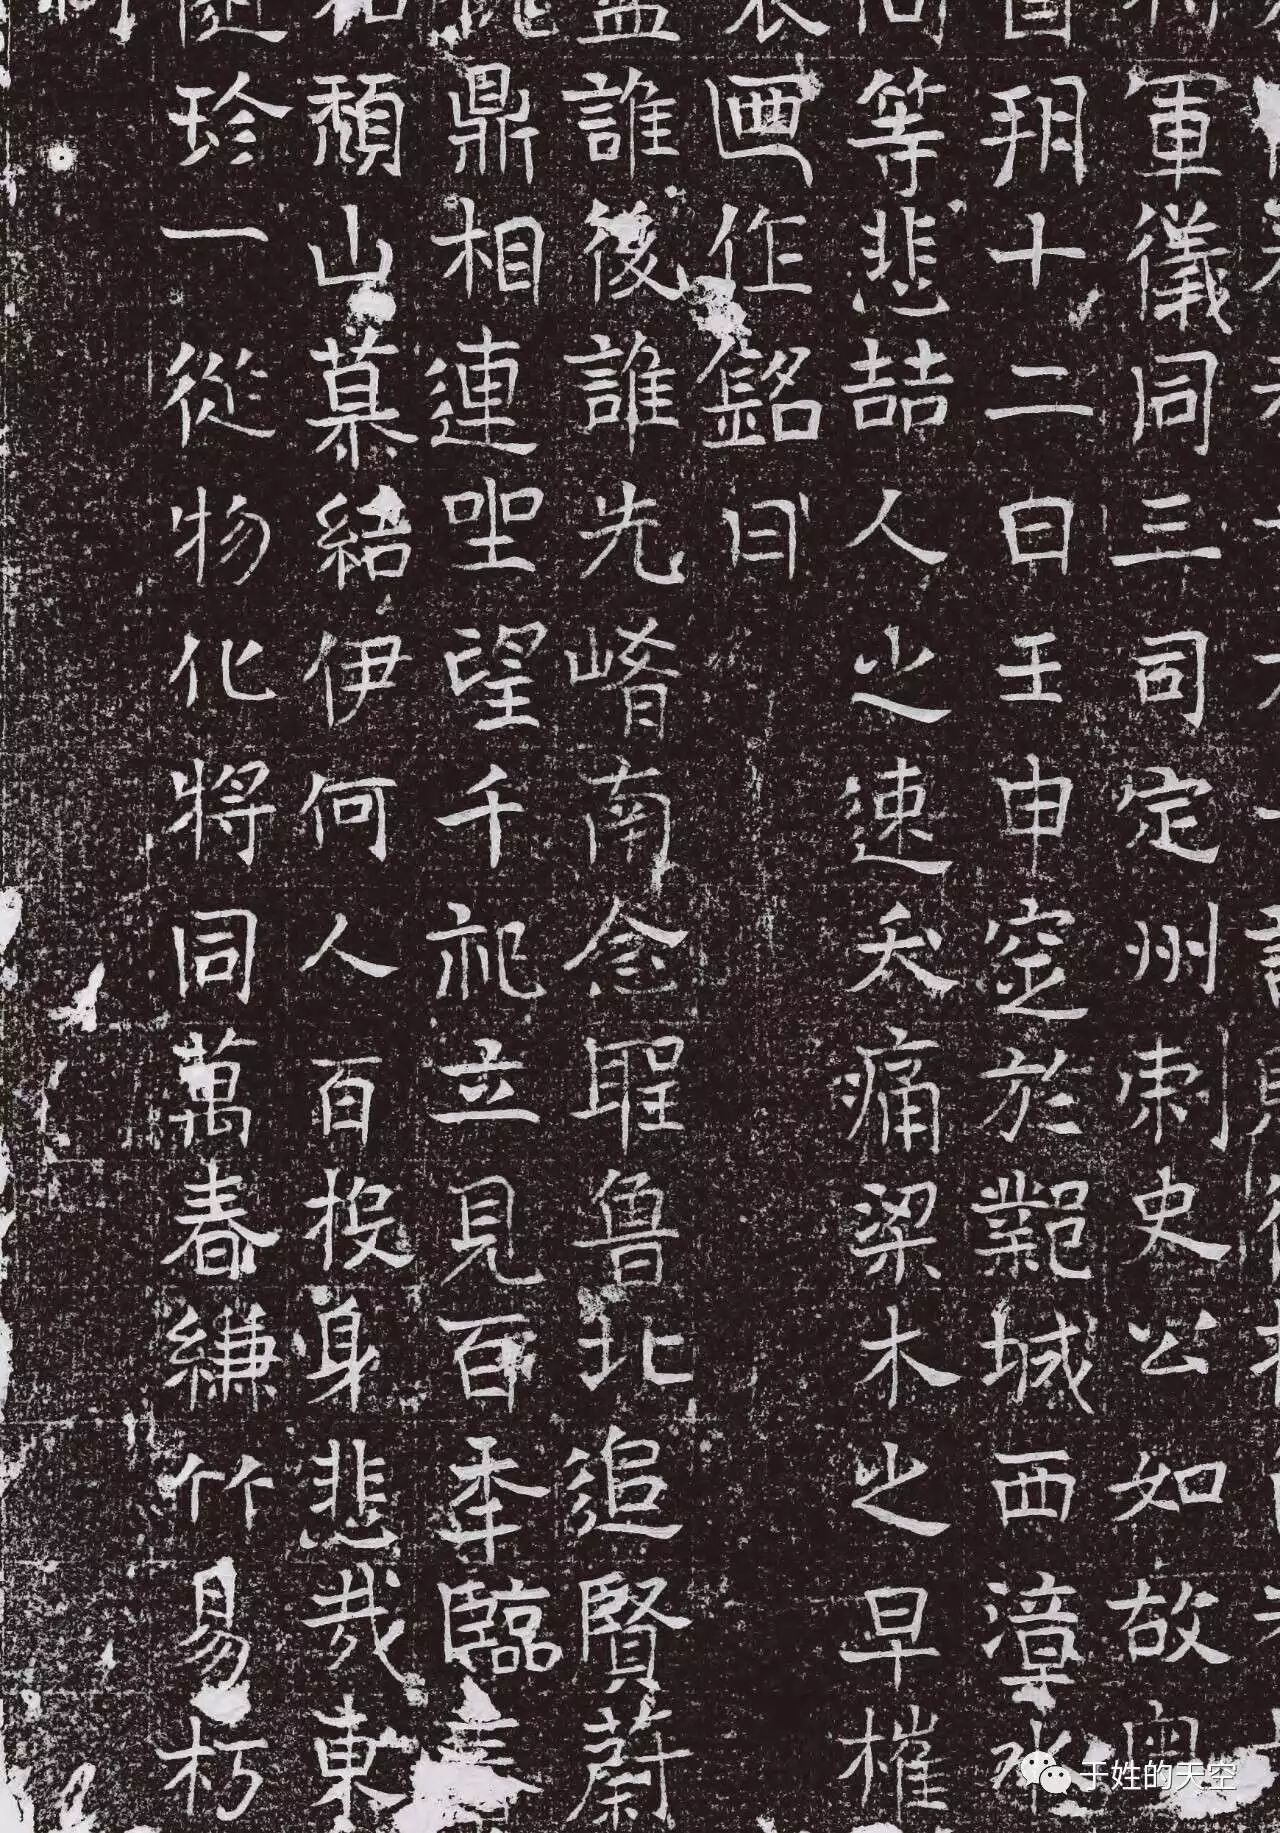 軍儀同三司定州刺史公如故粤
朔十二日壬申窆於鄴城西漳水
等悲喆人之速夭痛梁木之早摧
畫作銘曰
誰後誰先崤南念聖魯北追賢蔚
鼎相連聖望千祀立見百年臨
頹山慕結伊何人百投身悲哉東
珍一從物化將同萬春縑竹易朽
于姓的天空